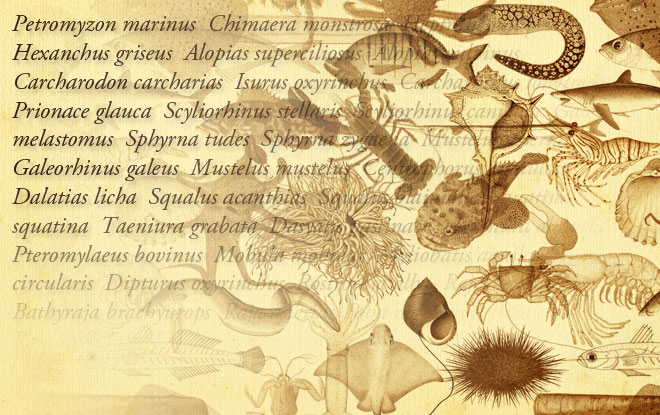 Petromyzon marinus Chimaera monstrosa
Hexanchus griseus Alopias superciliosus Alopias
Carcharodon carcharias Isurus oxyrinchus
Prionace glauca Scyliorhinus stellaris Scyliorhinus
melastomus Sphyrna tudes Sphyrna zygaena Mustelus
Galeorhinus galeus Mustelus mustelus
Dalatias licha Squalus acanthias Squalus
squatina Taeniura grabata Dasyatis
Pteromylaeus bovinus Mobula Myliobatis
circularis Dipturus oxyrinchus
Bathyraja brachyurops